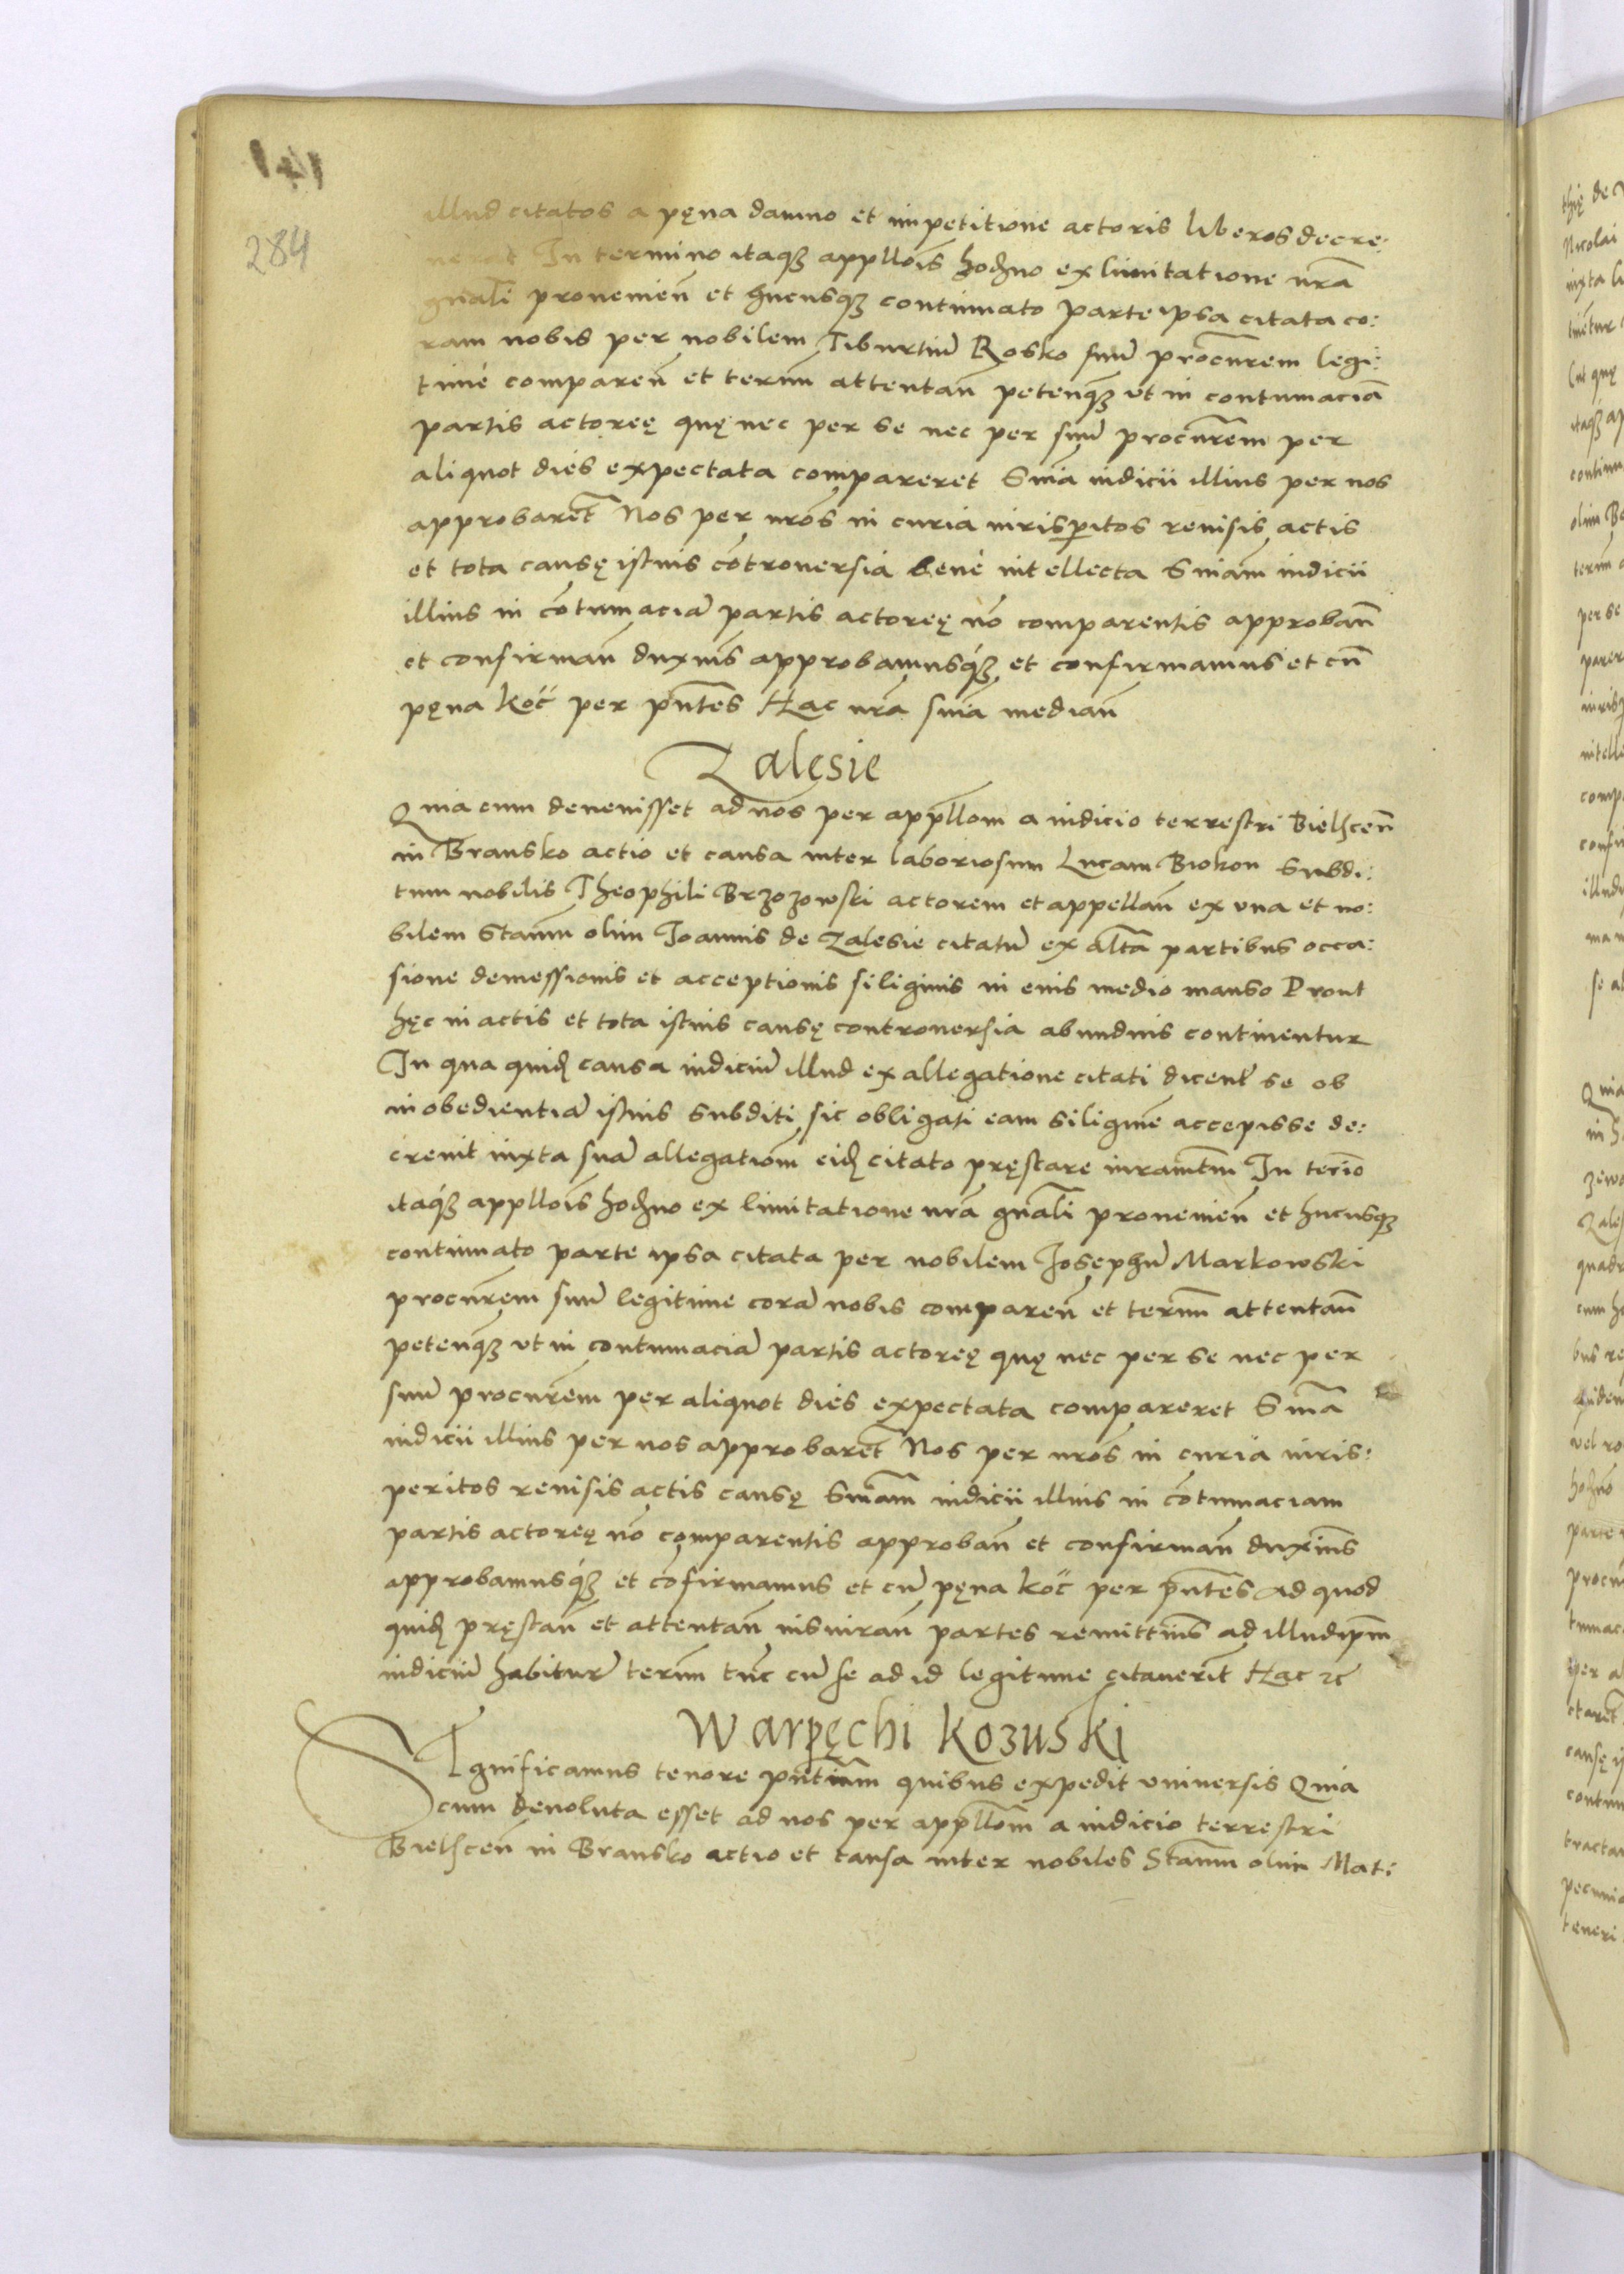 141
284
illud citatos a pęna damno et impetitione actoris liberos decre:
nerat In termino itaqꝫ appllois̄ hodno ex limitatione nr̄a
gn̄ali prouenien̄ et hucusqꝫ continuato parte ipsa citata co:
ram nobis per nobilem Tiburtiū Rosko suū procūrem legi:
time comparen̄ et term̄ attentan̄ petenqꝫ ut in contumaciā
partis actoreę quę nec per se nec per suū procūrem per
aliquot dies expectata compareret Sn̄ia iudicii illius per nos
approbaret̄ Nos per nr̄os in curia iurisperitos reuisis actis
et tota causę istius cōtrouersia bene intellecta Sn̄iam iudicii
illius in cōtumaciā partis actoreę nō comparentis approban̄
et confirman̄ duxim̄s approbamusqꝫ et confirmamus et cū
pęna koc̈ per pn̄tes Hac nr̄a sn̄ia median̄
Zalęsie
Quia cum deuenisset ad nos per appllom̄ a iudicio terrestri Bielscen̄
in Bransko actio et causa inter laboriosum Lucam Biokon Subdi:
tum nobilis Theophili Brzozowski actorem et appellan̄ ex una et no:
bilem Stanm̄ olim Joannis de Zalesie citatū ex alt̄a partibus occa:
sione demessionis et acceptionis siliginis in eius medio manso Prout
hęc in actis et tota istius causę controuersia abundius continentur
In qua quid̄ causa iudiciū illud ex allegatione citati dicent̄ se ob
inobedientiā istius subditi sic obligati eam siliginē accepisse de:
creuit iuxta suā allegationm̄ eid̄ citato pręstare iuramt̄m In termīo
itaqꝫ appllois̄ hodno ex limitatione nr̄a gn̄ali prouenien̄ et hucusqꝫ
continuato parte ipsa citata per nobilem Josephū Markowski
procūrem suū legitime corā nobis comparen̄ et term̄ attentan̄
petenqꝫ ut in contumaciā partis actoreę quę nec per se nec per
suū procūrem per aliquot dies expectata compareret Sn̄ia
iudicii illius per nos approbaret̄ Nos per nr̄os in curia iuris:
peritos reuisis actis causę Sn̄iam iudicii illius in cōtumaciam
partis actoreę nō comparentis approban̄ et confirman̄ duxim̄s
approbamusqꝫ et cōfirmamus et cū pęna koc̈ per pn̄tes ad quod
quid̄ pręstan̄ et attentan̄ iusiuran̄ partes remittim̄s ad illud ipm̄
iudiciū habiturū term̄ tūc cū se ad id legitime citauerit̄ Hac ꝛc̄
Warpęchi Kozuski
SIgnificamus tenore pn̄tium quibus expedit uniuersis Quia
cum deuoluta esset ad nos per appllom̄ a iudicio terrestri
Bielscen̄ in Bransko actio et causa inter nobiles Stanm̄ olim Mat: